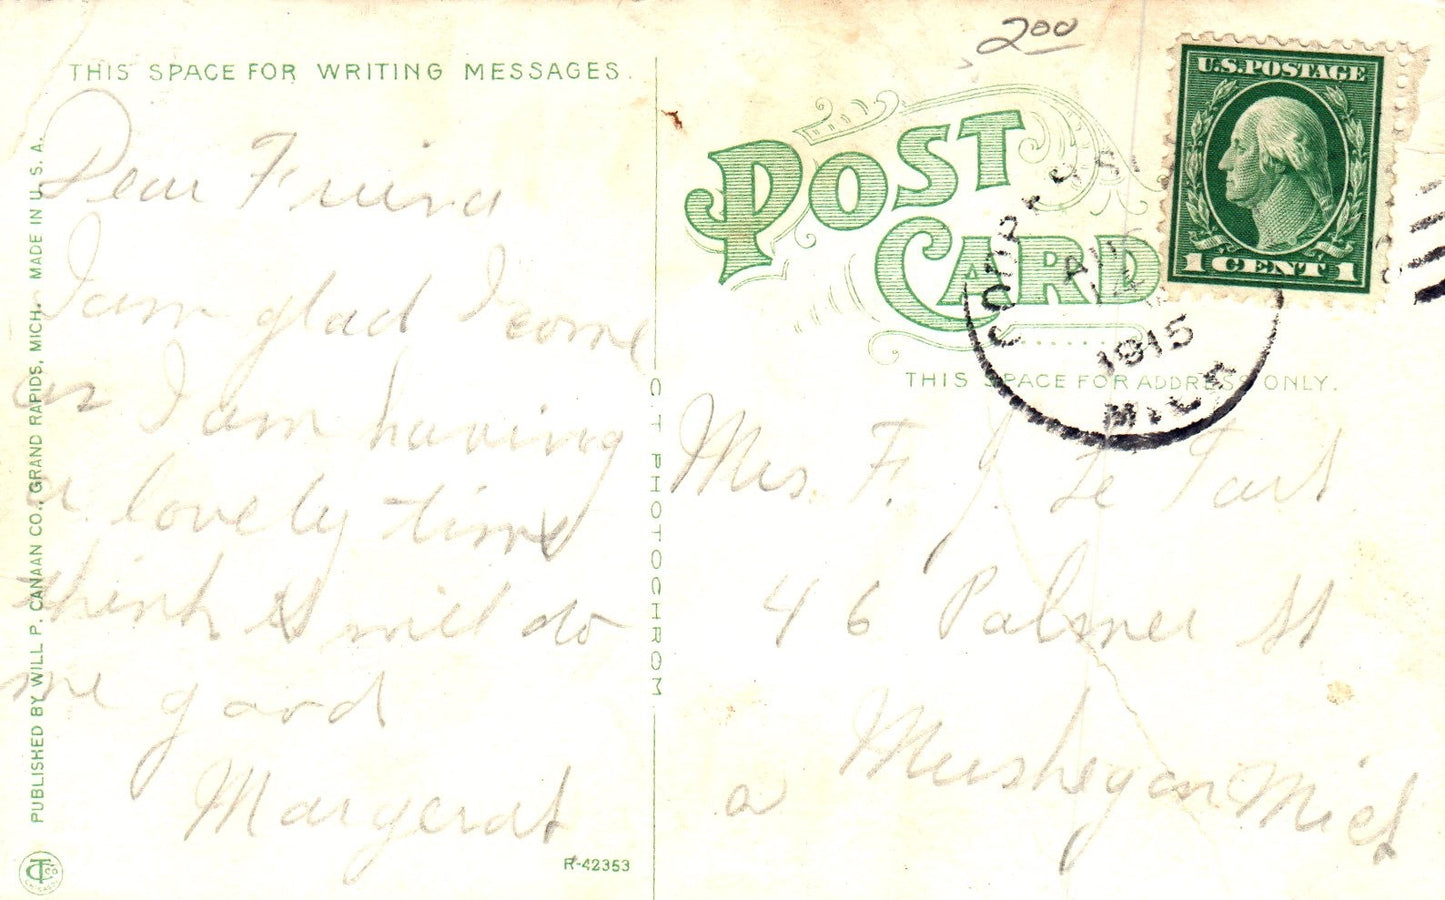 THIS SPACE FOR WRITING MESSAGES.
Dear Friend
I am glad I come
as I am having
a lovely time
think it will do
me good
Margerat
PUBLISHED BY WILL P. CANAAN CO., GRAND RAPIDS, MICH. MADE IN U. S. A.
R-42353
C. T. PHOTOCHROM
200
POST
CARD
U.S. POSTAGE
1 CENT 1
AUG
14
1915
MICH
THIS SPACE FOR ADDRESS ONLY.
Mrs. F. J. Le Tart
46 Palmer St
Muskegon Mich
a